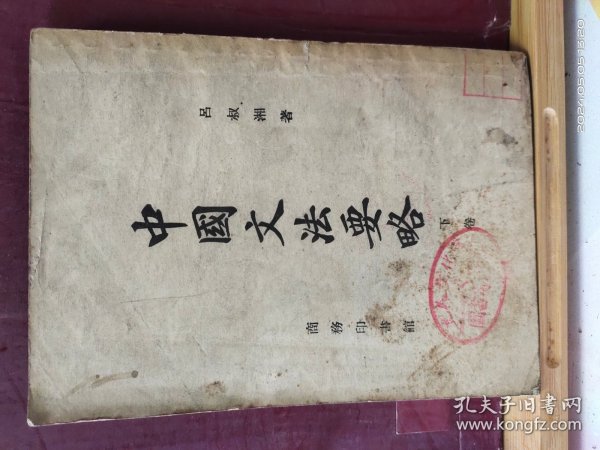 呂叔湘著
中國文法要略
下卷
商務印書館
2024/05/05 13:20
孔夫子旧书网
www.kongfz.com